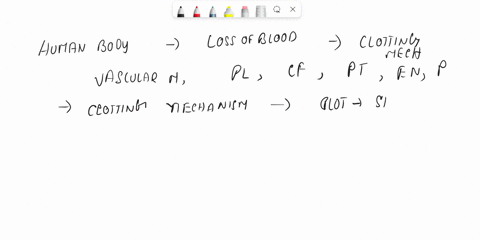 HUMAN BODY → LOSS OF BLOOD → CLOTTING MECH
VASCULAR M, PL, CF, PT, EN, P
→ CLOTTING MECHANISM → CLOT → SI